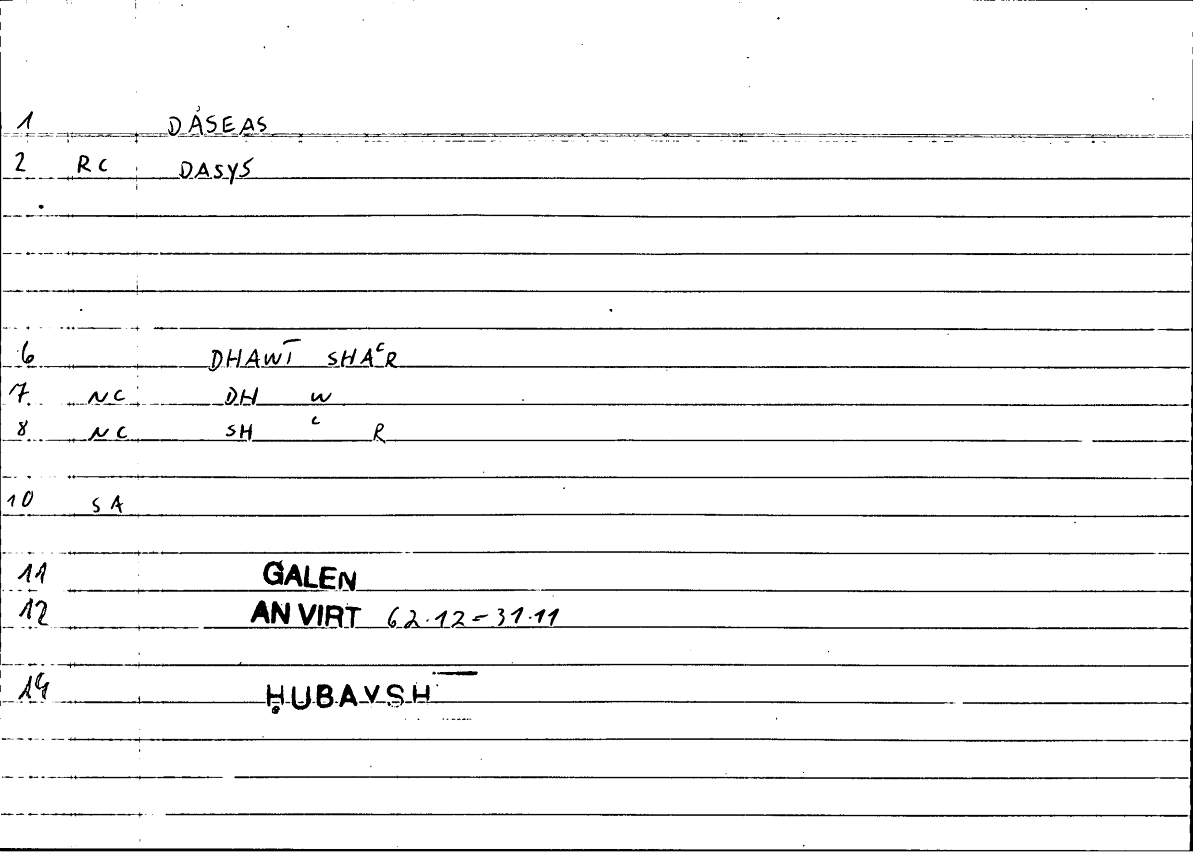 1 DÁSEAS
2 RC DASYS
6 DHAWĪ SHAᶜR
7 NC DH W
8 NC SH ᶜ R
10 SA
11 GALEN
12 AN VIRT 62.12=31.11
14 ḤUBAYSH